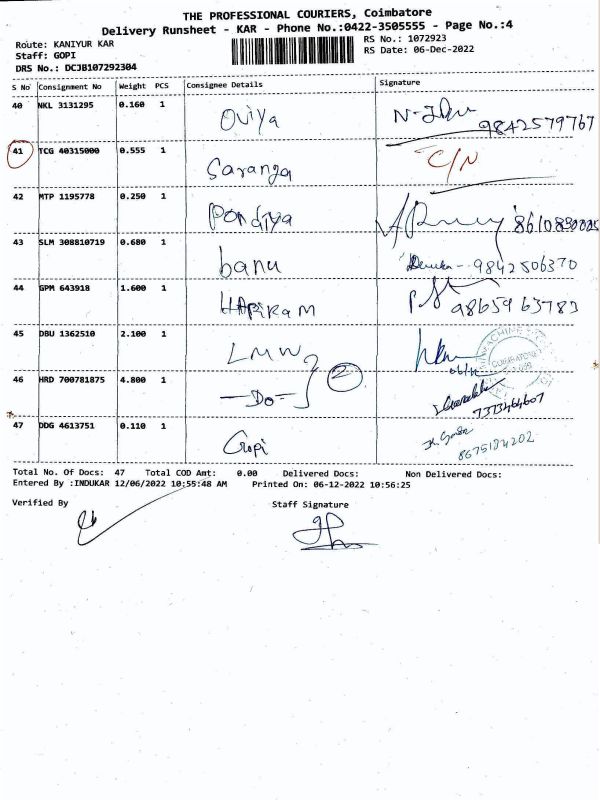 THE PROFESSIONAL COURIERS, Coimbatore
Delivery Runsheet - KAR - Phone No.:0422-3505555 - Page No.:4
Route: KANIYUR KAR
Staff: GOPI
DRS No.: DCJB107292304
RS No.: 1072923
RS Date: 06-Dec-2022
S No Consignment No Weight PCS Consignee Details Signature
40 NKL 3131295 0.160 1 Oviya 9842579767
41 TCG 40315000 0.555 1 Saranga C/N
42 MTP 1195778 0.250 1 Pondiya
43 SLM 308810719 0.680 1 banu 9842506370
44 GPM 643918 1.600 1 HARIRAM 9865963783
45 DBU 1362510 2.100 1 LMW
46 HRD 700781875 4.800 1 -Do- 2
47 DDG 4613751 0.110 1 Gopi
Total No. Of Docs: 47 Total COD Amt: 0.00 Delivered Docs: Non Delivered Docs:
Entered By :INDUKAR 12/06/2022 10:55:48 AM Printed On: 06-12-2022 10:56:25
Verified By
Staff Signature